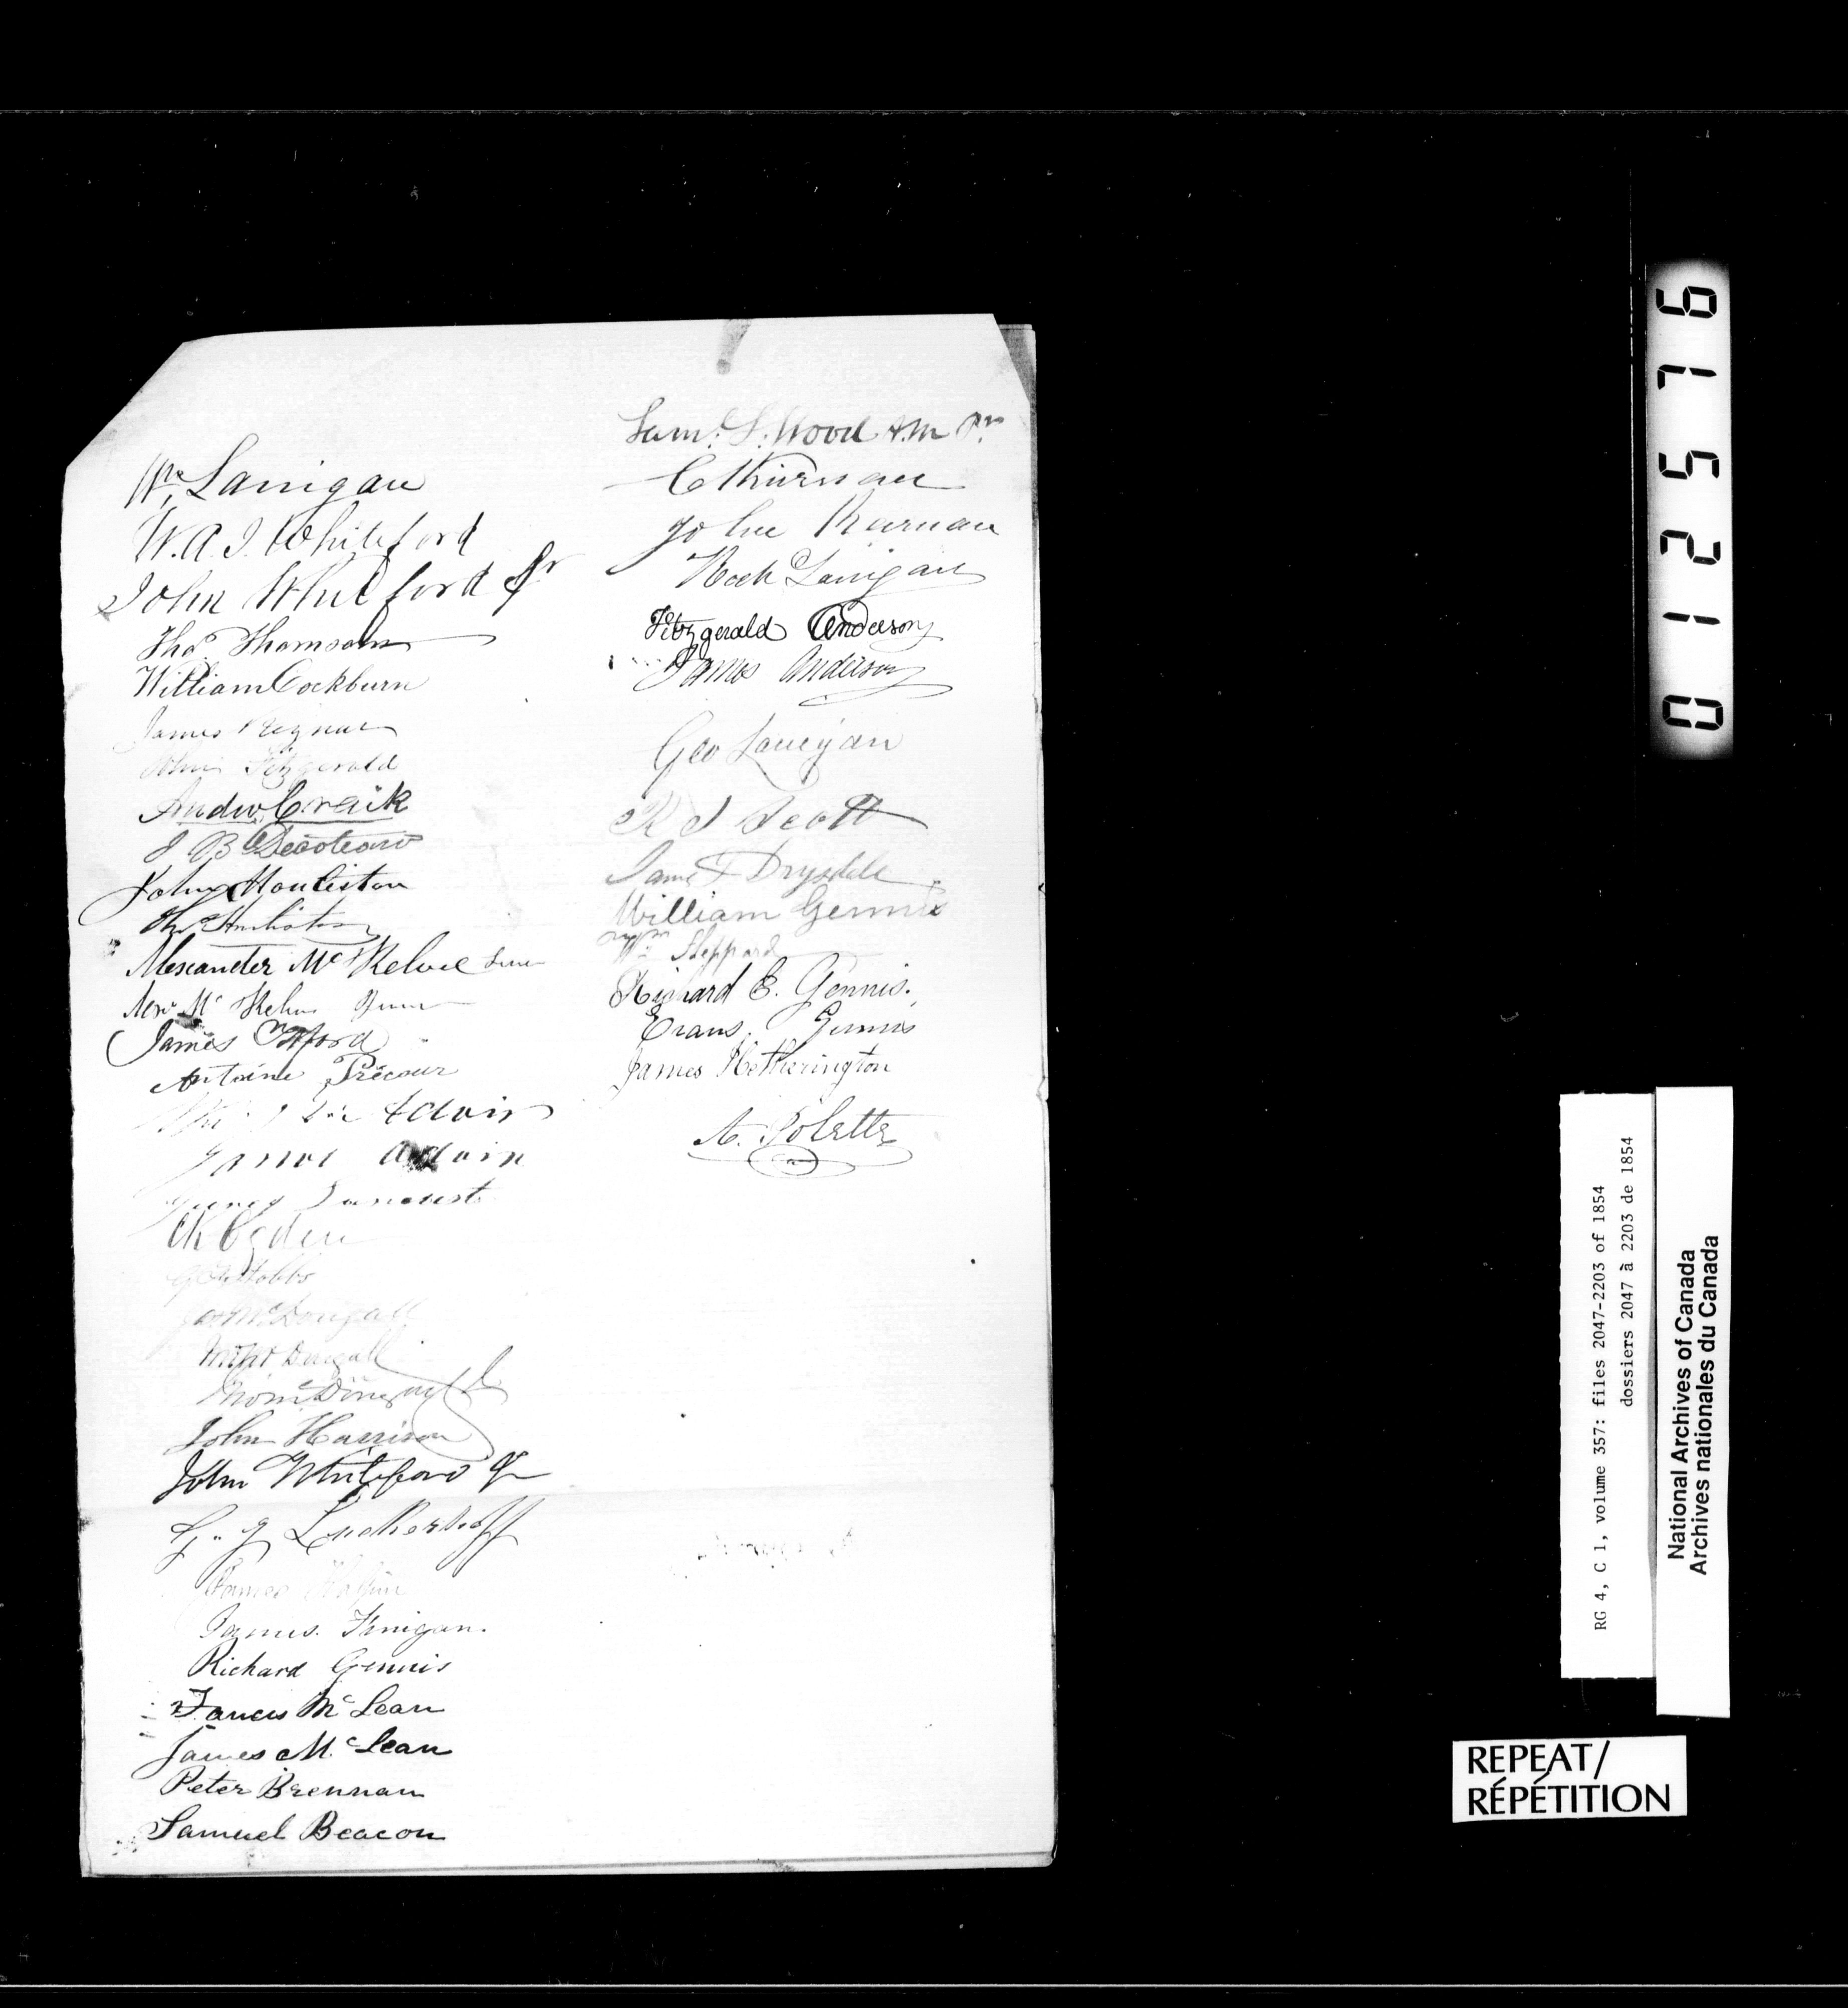 Wm. Lanigan
W.A.J. Whiteford
John Whiteford Sr
Tho.s Thomson
William Cockburn
James
John Fitzgerald
Andw. Craik
J B Decoteau
John Houliston
Alexander Mc Kelvie Senr
Alexr Mc Kelvie Junr
James Offord
Antoine Précour
Adair
James Adair
CK Ogden
Hobbs
McDougall
McDougall
McDougall
John Harrison
John Whiteford Jr
G. J Luckerhoff
James Halpin
James. Finigan.
Richard Gennis
Francis Mc Lean
James Mc Lean
Peter Brennan
Samuel Beacon
Sam: S: Wood A.M.
C Kiernan
John Kiernan
Rock Lanigan
Fitzgerald Anderson
James Anderson
Geo Lanigan
R J Scott
James Drysdale
William Gennis
Wm Sheppard
Richard E. Gennis.
Evans. Gennis
James Hetherington
A. Polette
012576
RG 4, C 1, volume 357: files 2047-2203 of 1854
dossiers 2047 à 2203 de 1854
National Archives of Canada
Archives nationales du Canada
REPEAT/
RÉPÉTITION